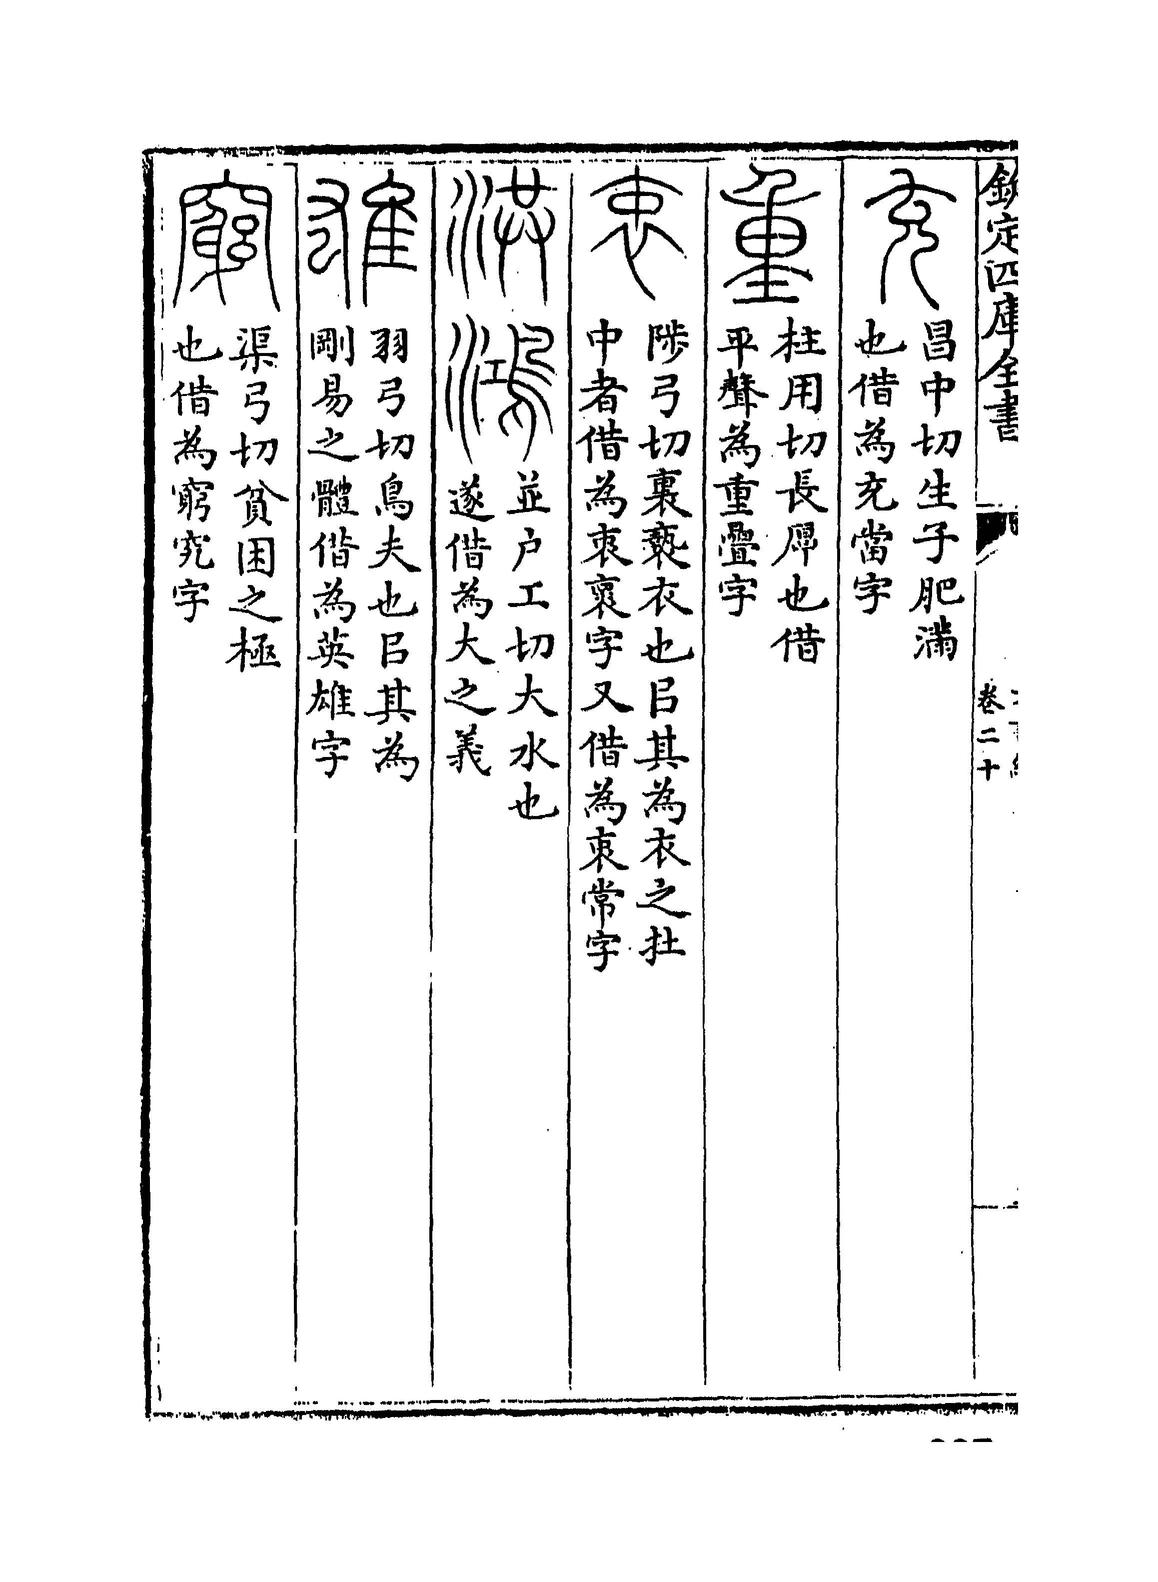 欽定四庫全書
卷二十
充
昌中切生子肥滿
也借為充當字
重
柱用切長厚也借
平聲為重疊字
衷
陟弓切裏褻衣也㠯其為衣之在
中者借為衷裏字又借為衷常字
洪鴻
並户工切大水也
遂借為大之義
雄
羽弓切鳥夫也㠯其為
剛易之體借為英雄字
窮
渠弓切貧困之極
也借為窮究字